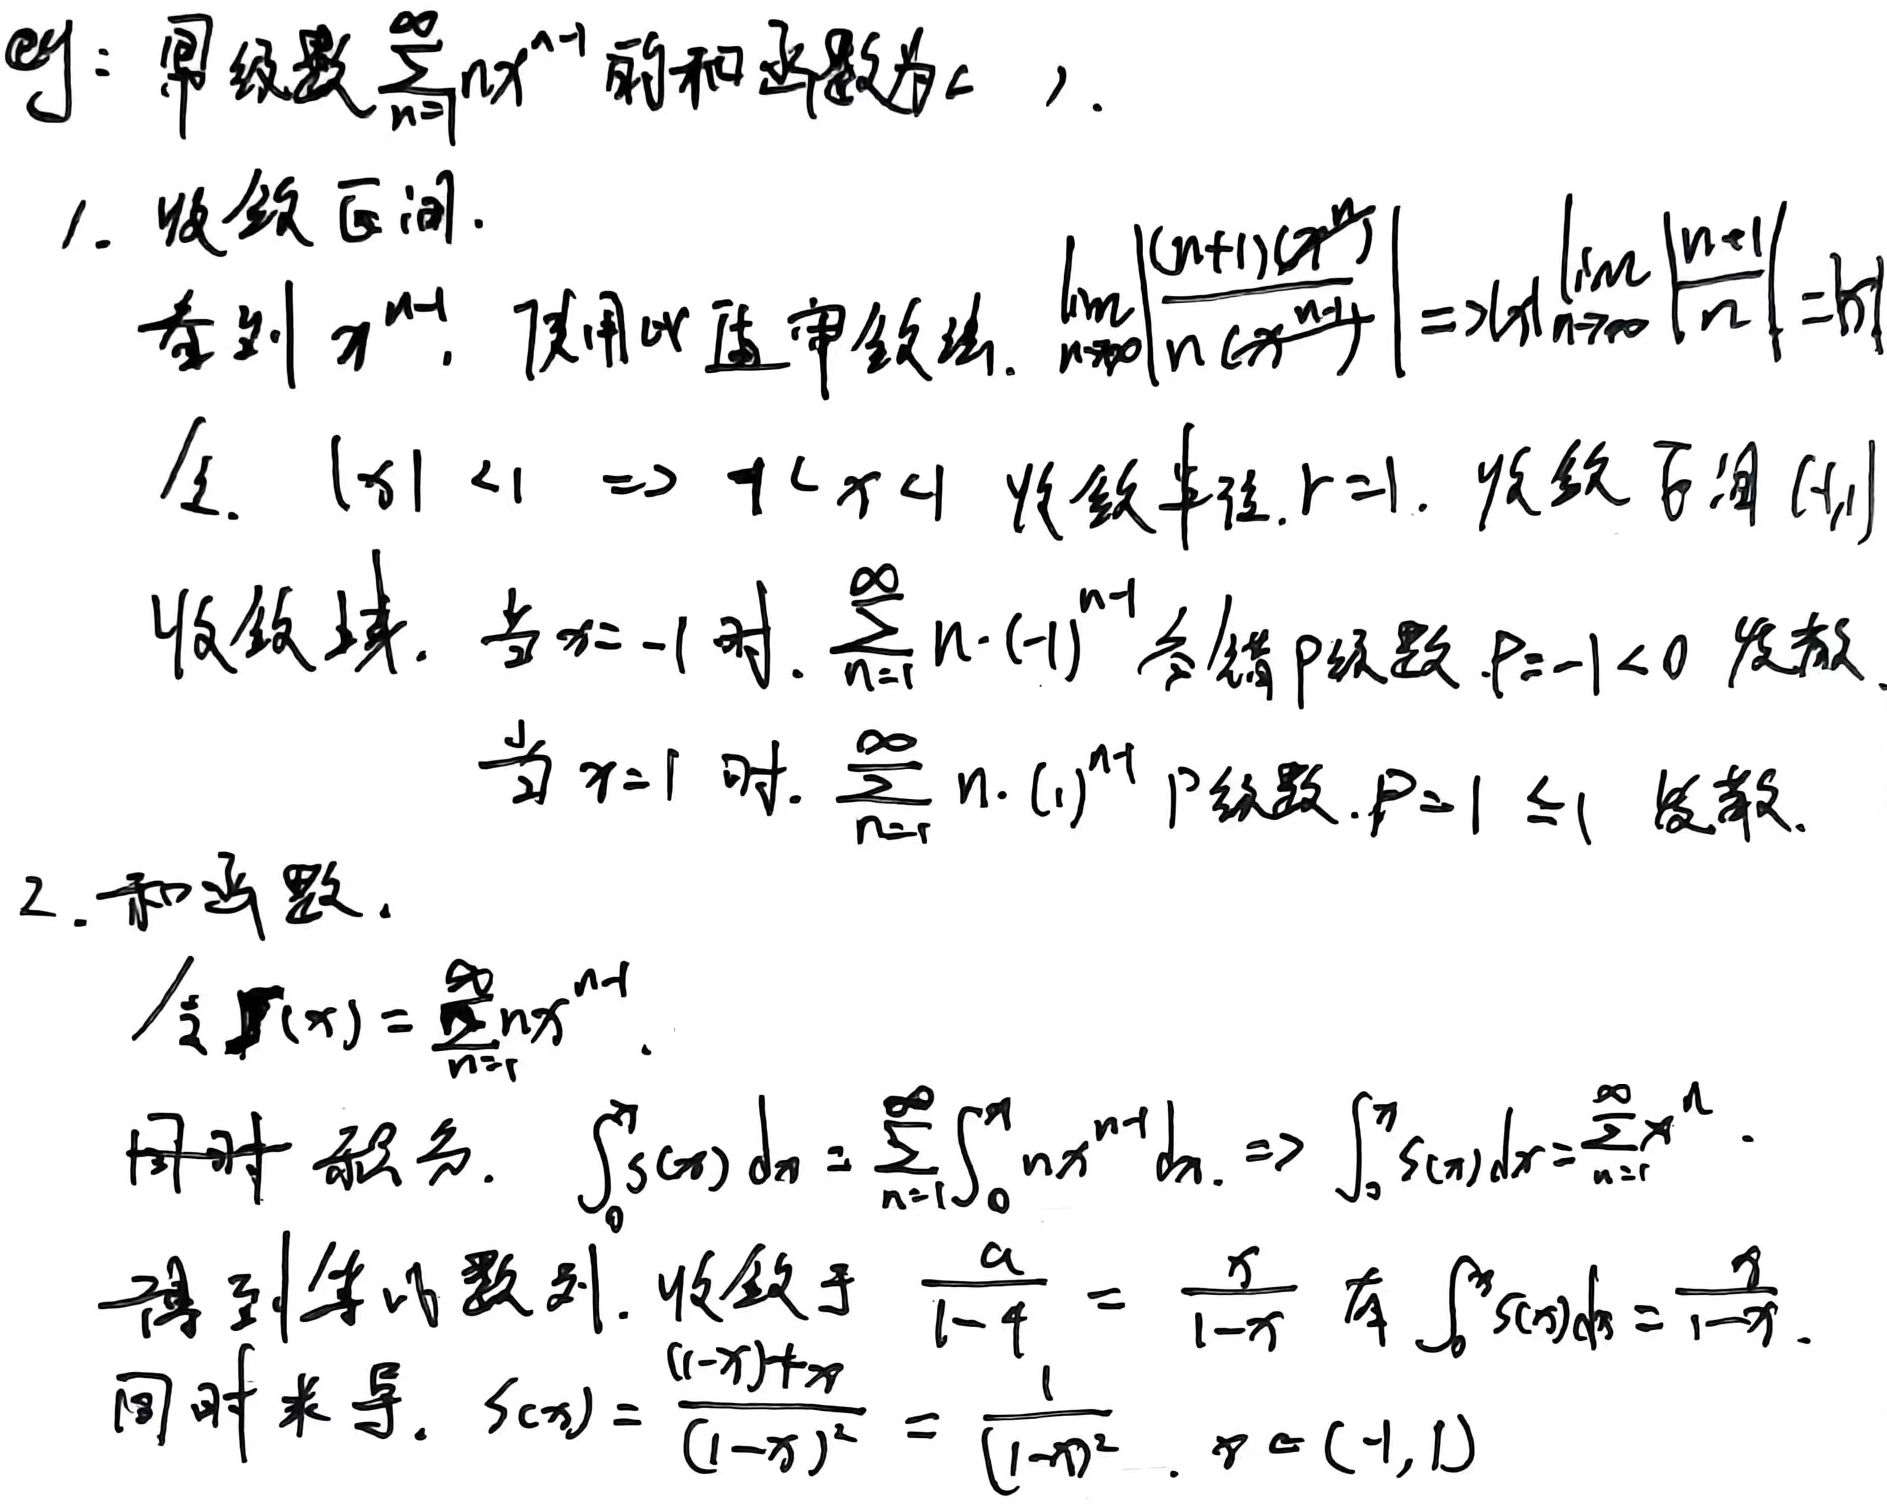 eg: 幂级数 $\sum_{n=1}^{\infty} nx^{n-1}$ 的和函数为( ).
1. 收敛区间.
看到 $x^{n-1}$, 使用比值审敛法. $\lim_{n\to\infty}\left|\frac{(n+1)(x^{n})}{n(x^{n-1})}\right| => |x|\lim_{n\to\infty}\left|\frac{n+1}{n}\right| = |x|$
令. $|x|<1$ => $-1<x<1$ 收敛半径. r=1. 收敛区间 (-1,1)
收敛域. 当 x=-1 时. $\sum_{n=1}^{\infty} n\cdot(-1)^{n-1}$ 交错P级数. P=-1<0 发散.
当 x=1 时. $\sum_{n=1}^{\infty} n\cdot(1)^{n-1}$ P级数. P=1 ≤1 发散.
2. 和函数.
令 $S(x)=\sum_{n=1}^{\infty} nx^{n-1}$.
同时积分. $\int_0^x s(x)dx = \sum_{n=1}^{\infty}\int_0^x nx^{n-1}dx.$ => $\int_0^x s(x)dx=\sum_{n=1}^{\infty}x^n$.
得到等比数列. 收敛于 $\frac{a}{1-q} = \frac{x}{1-x}$ 有 $\int_0^x s(x)dx = \frac{x}{1-x}$.
同时求导. $s(x) = \frac{(1-x)+x}{(1-x)^2} = \frac{1}{(1-x)^2}$. $x\in(-1,1)$